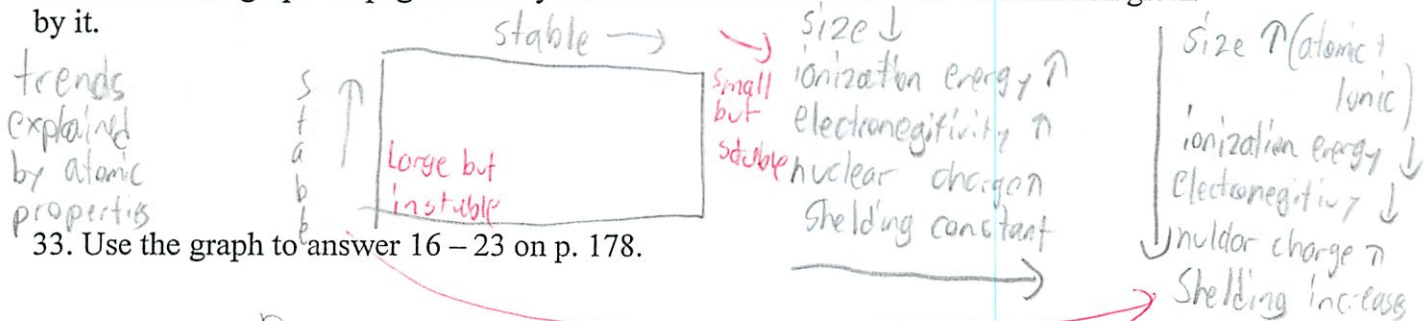 by it.
trends
explained
by atomic
properties
stable →
s
t
a
b
l
e
↑
Large but
instable
small
but
stuble
size ↓
ionization energy ↑
electronegitivity ↑
nuclear charge ↑
Shelding constant
size ↑ (atomic +
Ionic)
ionization energy ↓
Electronegitivy ↓
nuldor charge ↑
Shelding increase
33. Use the graph to answer 16 – 23 on p. 178.